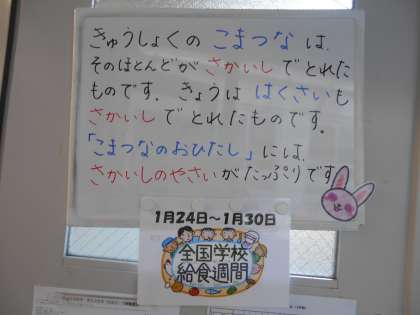 きゅうしょくの こまつな は、
そのほとんどが さかいし で とれた
ものです。 きょうは はくさいも
さかいし で とれたものです。
「こまつなのおひたし」には、
さかいしのやさいがたっぷりです
1月24日～1月30日
全国学校
給食週間